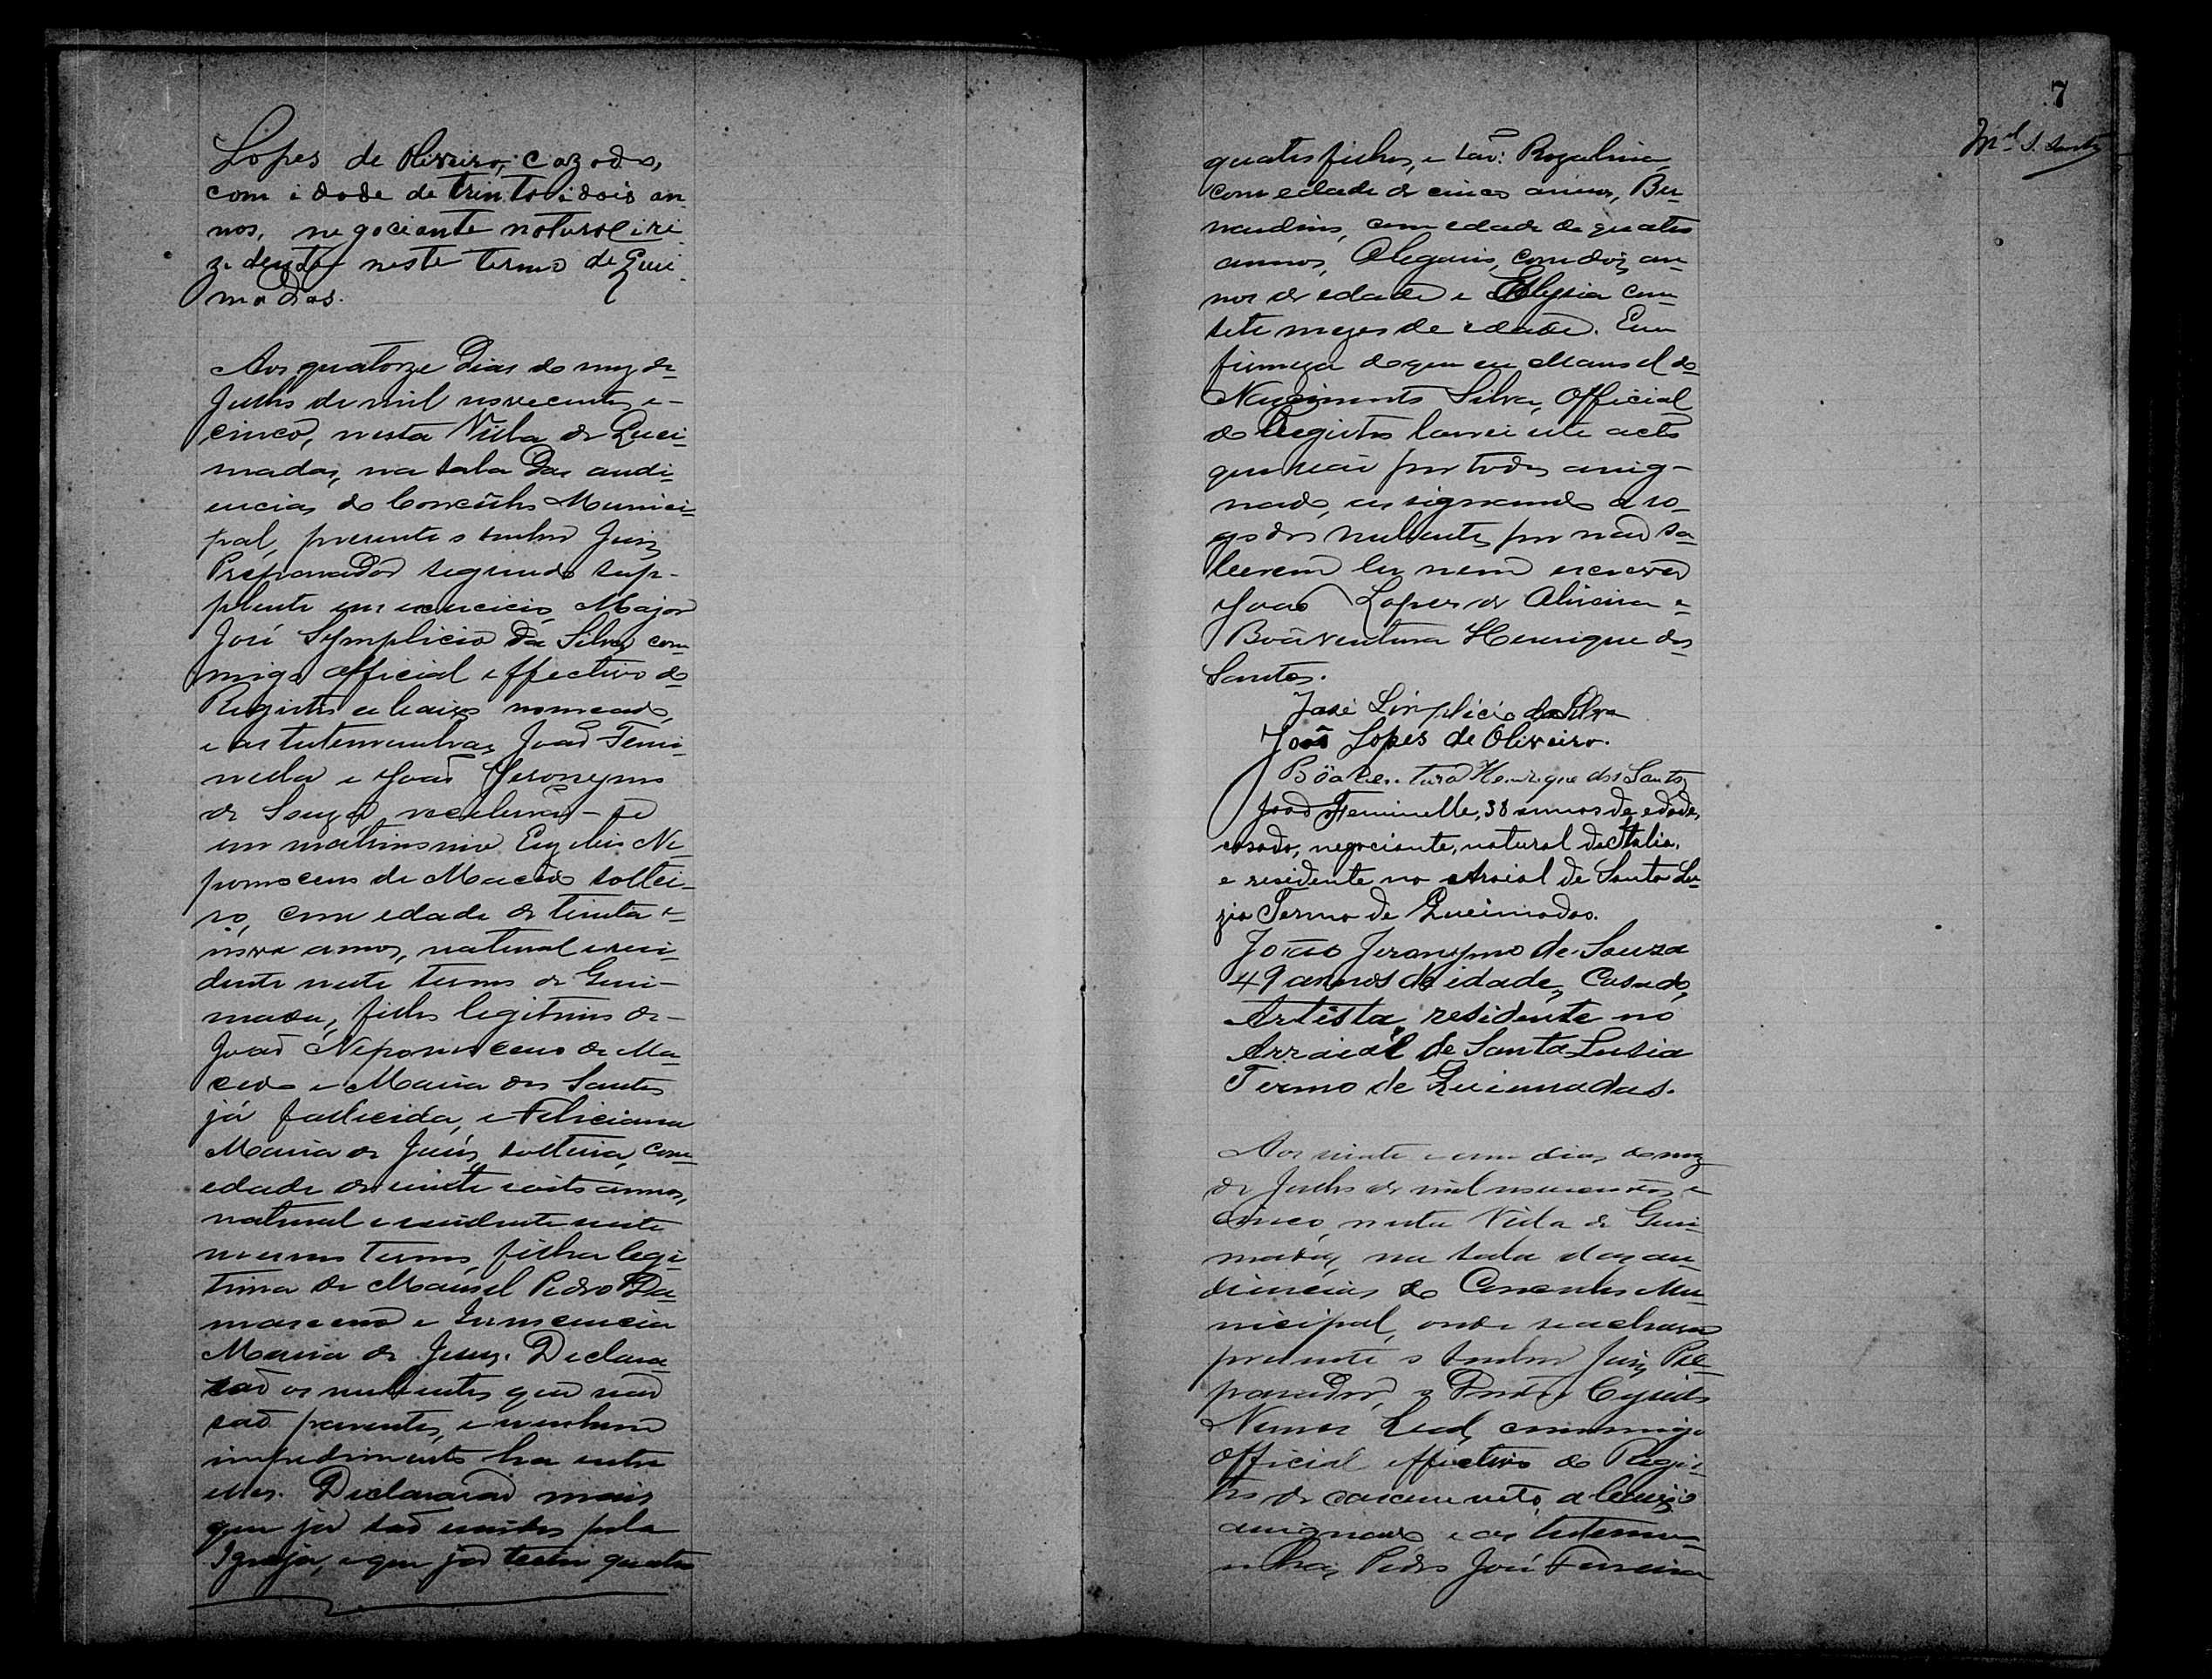 Lopes de Oliveira, cazado,
com idade de trinta i dois an-
nos, negociante natural i ri-
zidente neste termo de Quei-
madas.
Aos quatorze dias do mez de
Julho de mil novecentos e
cinco, nesta Villa de Quei-
madas, na sala das audi-
encias do Concelho Munici-
pal, presente o senhor Juiz
Preparador segundo sup-
plente em exercicio, Major
José Symplicio da Silva, com-
migo official effectivo do
Registro abaixo nomeado,
e as testemunhas João Femi-
nella e João Jeronymo
de Souza receberão-se
em matrimonio Ne-
pomoceno de Macedo soltei-
ro, com edade de trinta e
nove annos, natural e resi-
dente neste termo de Quei-
madas, filho legitimo de
João Nepomoceno de Ma-
cedo e Maria dos Santos
já fallecida, e Feliciana
Maria de Jesús, solteira, com
edade de vinte e oito annos,
natural e residente neste
mesmo termo, filha legi-
tima de Manoel Pedro Da-
masceno e Innocencia
Maria de Jesus. Declara-
rão os nubentes que não
são parentes, e nenhum
impedimento ha entre
elles. Declararão mais
que já são unidos pela
Igreja, e que já teem quatro
7
Mel S. Santos
quatro filhos, e são: Rozalina,
com edade de cinco annos, Ber-
nardino, com edade de quatro
annos, Olegario, com dois an-
nos de edade e Elysia com
sete mezes de edade. Em
firmeza do que eu Manoel do
Nascimento Silva, Official
do Registro lavrei este acto
que vai por todos assig-
nado, assignando a ro-
go dos nubentes por não sa-
berem ler nem escrever
João Lopes de Oliveira e
Boaventura Henrique dos
Santos.
José Simplicio da Silva
João Lopes de Oliveira.
Bôaventura Henrique dos Santos
João Feminelle, 38 annos de edade,
casado, negociante, natural da Italia,
e residente no Arraial de Santa Lu-
zia Termo de Queimadas.
João Jeronymo de Souza
49 annos de idade, Casado,
Artista, residente no
Arraial de Santa Lusia
Termo de Queimadas.
Aos vinte e um dias do mez
de Julho de mil novecentos e
cinco, nesta Villa de Quei-
madas, na sala das au-
diencias do Concelho Mu-
nicipal, onde se achava
presente o senhor Juiz Pre-
parador, o Doutor
Nunes Leal, commigo
Official effectivo do Regis-
tro de casamento, abaixo
assignado e as testemu-
nhas, Pedro José Ferreira